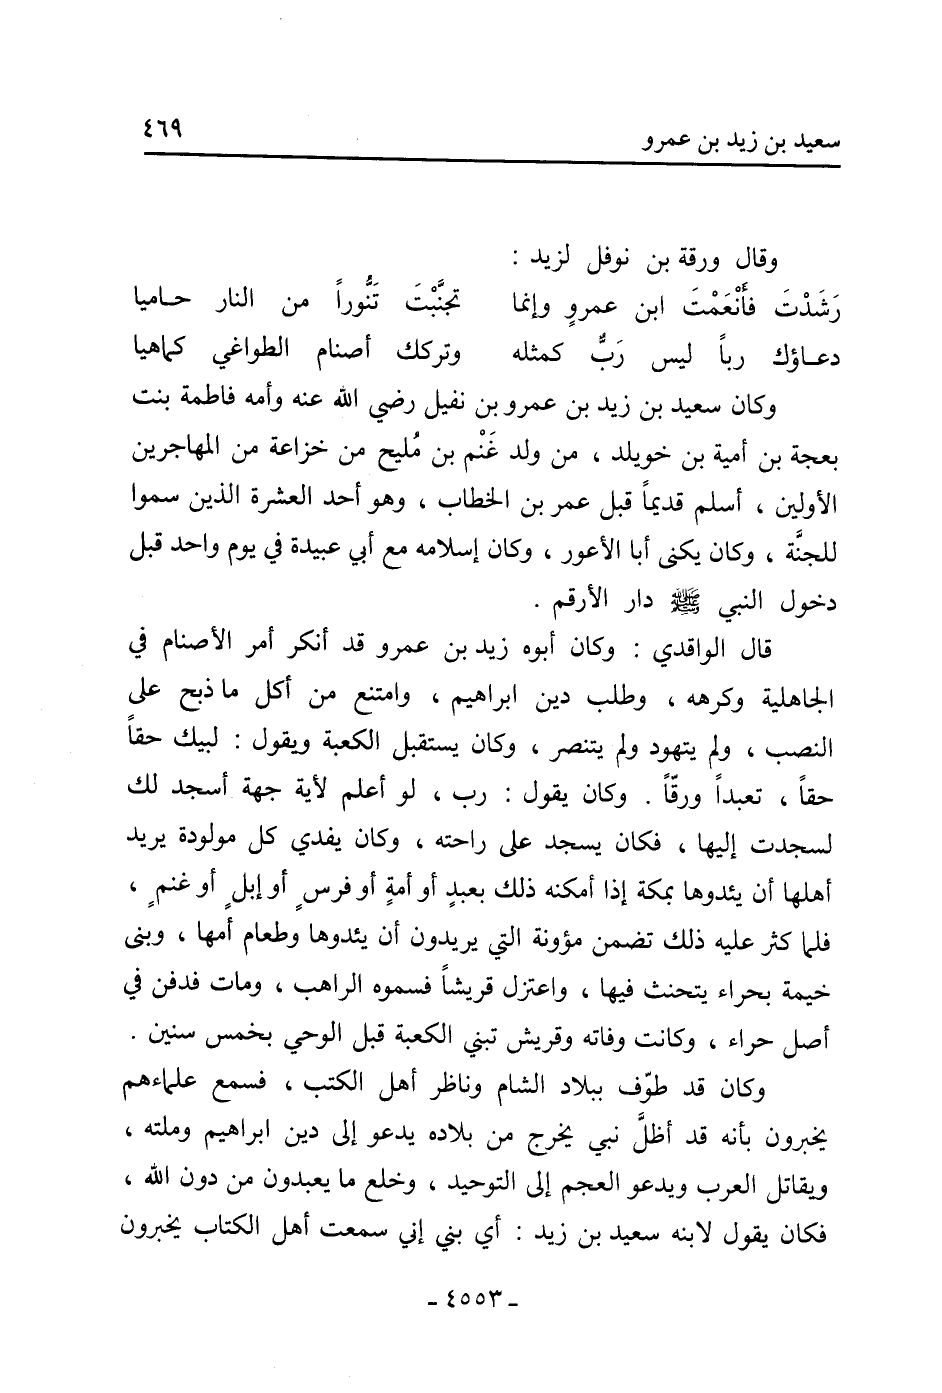 سعيد بن زيد بن عمرو ٤٦٩
وقال ورقة بن نوفل لزيد :
رَشَدْتَ فَأَنْعَمْتَ ابن عمروٍ وإنما تجنَّبْتَ تَنُّوراً من النار حـاميا
دعـاؤك رباً ليس رَبٌّ كمثله وتركك أصنام الطواغي كماهيا
وكان سعيد بن زيد بن عمرو بن نفيل رضي الله عنه وأمه فاطمة بنت
بعجة بن أمية بن خويلد ، من ولد غَنْم بن مُليح من خزاعة من المهاجرين
الأولين ، أسلم قديماً قبل عمر بن الخطاب ، وهو أحد العشرة الذين سموا
للجنَّة ، وكان يكنى أبا الأعور ، وكان إسلامه مع أبي عبيدة في يوم واحد قبل
دخول النبي ﷺ دار الأرقم .
قال الواقدي : وكان أبوه زيد بن عمرو قد أنكر أمر الأصنام في
الجاهلية وكرهه ، وطلب دين ابراهيم ، وامتنع من أكل ما ذبح على
النصب ، ولم يتهود ولم يتنصر ، وكان يستقبل الكعبة ويقول : لبيك حقاً
حقاً ، تعبداً ورقّاً . وكان يقول : رب ، لو أعلم لأية جهة أسجد لك
لسجدت إليها ، فكان يسجد على راحته ، وكان يفدي كل مولودة يريد
أهلها أن يئدوها بمكة إذا أمكنه ذلك بعبدٍ أو أمةٍ أو فرسٍ أو إبلٍ أو غنمٍ ،
فلما كثر عليه ذلك تضمن مؤونة التي يريدون أن يئدوها وطعام أمها ، وبنى
خيمة بحراء يتحنث فيها ، واعتزل قريشاً فسموه الراهب ، ومات فدفن في
أصل حراء ، وكانت وفاته وقريش تبني الكعبة قبل الوحي بخمس سنين .
وكان قد طوّف ببلاد الشام وناظر أهل الكتب ، فسمع علماءهم
يخبرون بأنه قد أظلَّ نبي يخرج من بلاده يدعو إلى دين ابراهيم وملته ،
ويقاتل العرب ويدعو العجم إلى التوحيد ، وخلع ما يعبدون من دون الله ،
فكان يقول لابنه سعيد بن زيد : أي بني إني سمعت أهل الكتاب يخبرون
- ٤٥٥٣ -